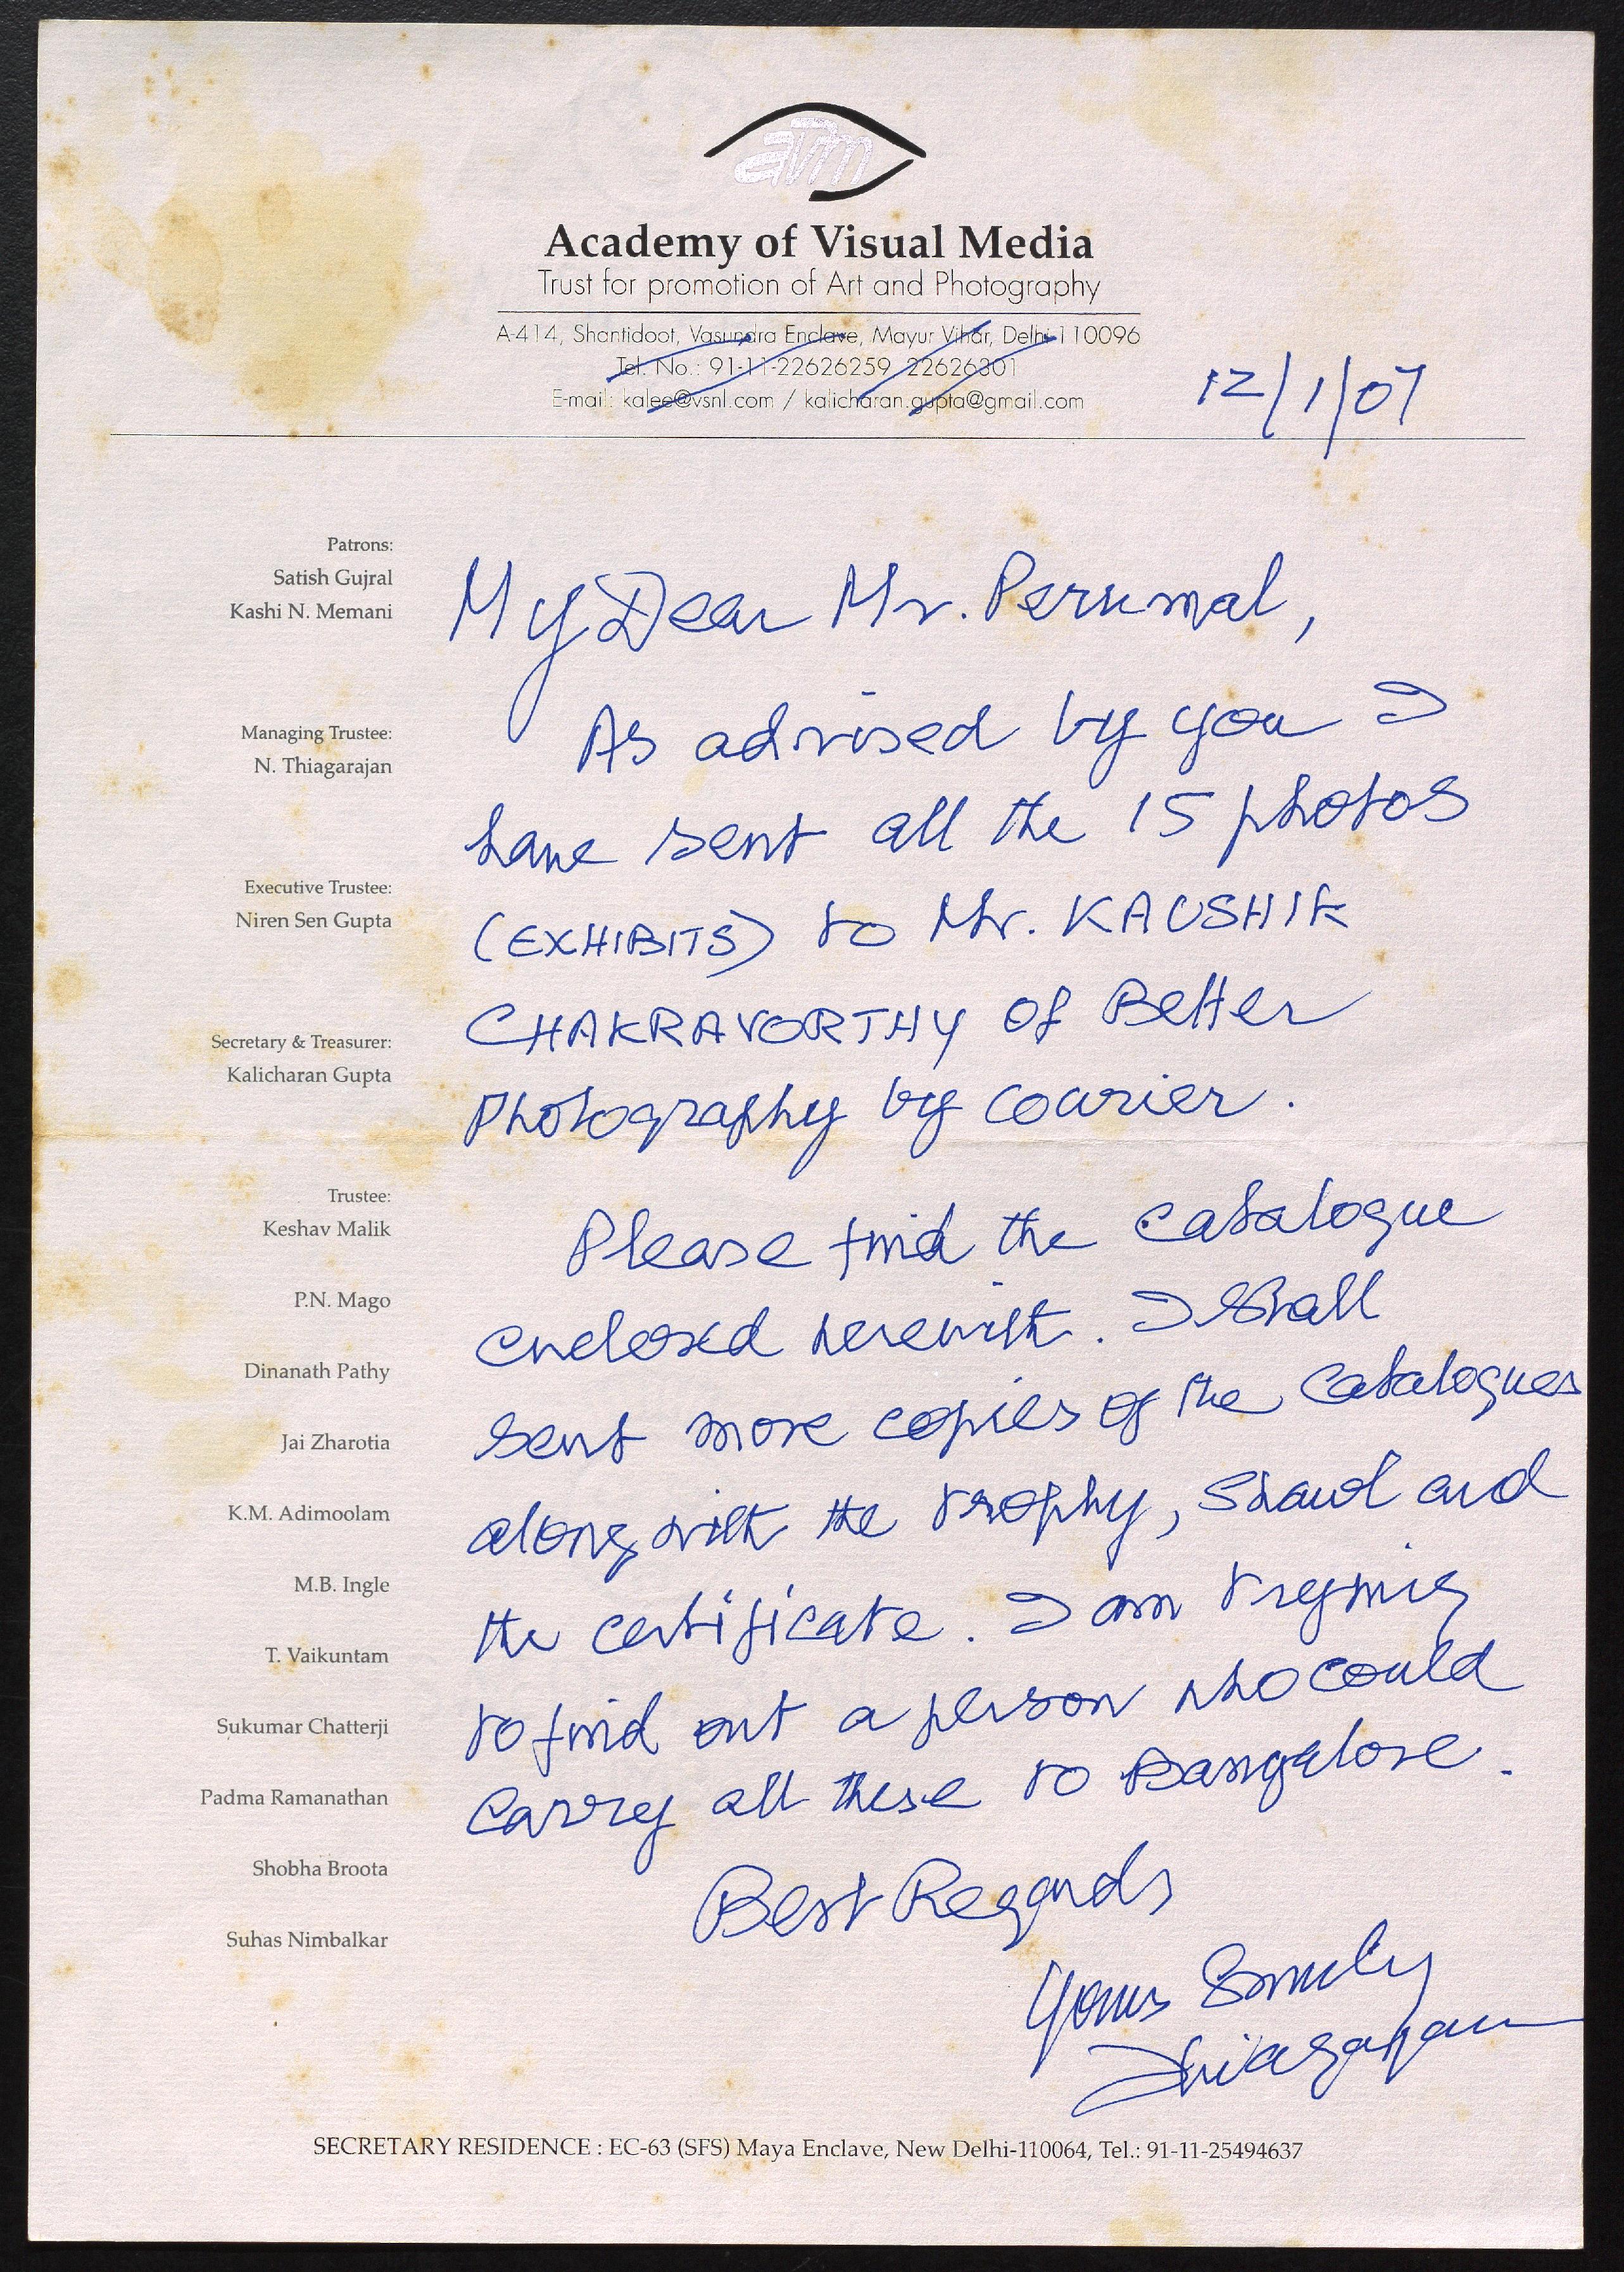 avm
Academy of Visual Media
Trust for promotion of Art and Photography
A-414, Shantidoot, Vasundra Enclave, Mayur Vihar, Delhi-110096
Tel. No.: 91-11-22626259 22626301
E-mail: kalee@vsnl.com / kalicharan.gupta@gmail.com
12/1/07
Patrons:
Satish Gujral
Kashi N. Memani
Managing Trustee:
N. Thiagarajan
Executive Trustee:
Niren Sen Gupta
Secretary & Treasurer:
Kalicharan Gupta
Trustee:
Keshav Malik
P.N. Mago
Dinanath Pathy
Jai Zharotia
K.M. Adimoolam
M.B. Ingle
T. Vaikuntam
Sukumar Chatterji
Padma Ramanathan
Shobha Broota
Suhas Nimbalkar
My Dear Mr. Perumal,
As advised by you I
have sent all the 15 photos
(EXHIBITS) to Mr. KAUSHIK
CHAKRAVORTHY of Better
Photography by courier.
Please find the catalogue
enclosed herewith. I shall
sent more copies of the catalogues
along with the trophy, shawl and
the certificate. I am trying
to find out a person who could
carry all these to Bangalore.
Best Regards
Yours Sincerely
Thiagarajan
SECRETARY RESIDENCE : EC-63 (SFS) Maya Enclave, New Delhi-110064, Tel.: 91-11-25494637